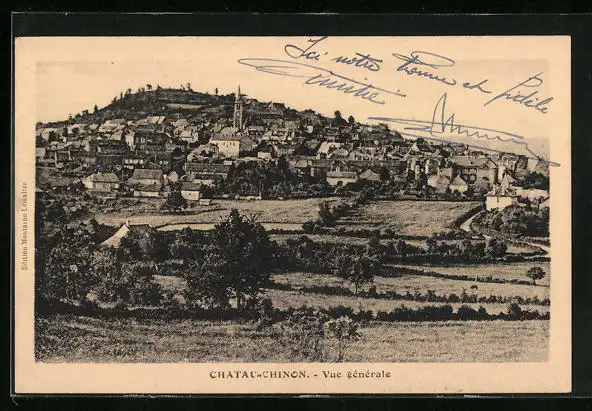 Ici notre bonne et fidèle
amitié
Edition Montaron-Lemaître
CHATAU-CHINON. - Vue générale